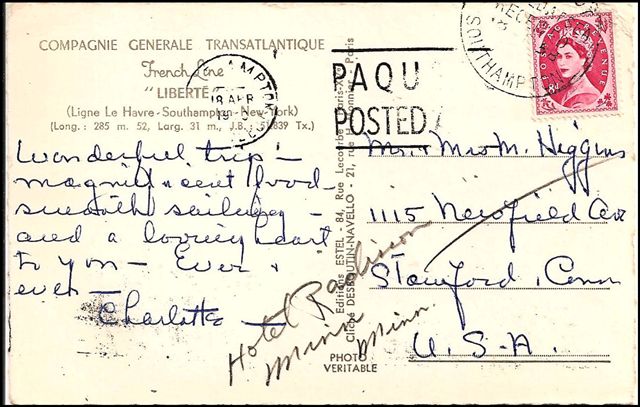 COMPAGNIE GENERALE TRANSATLANTIQUE
French Line
"LIBERTÉ"
(Ligne Le Havre-Southampton-New-York)
(Long.: 285 m. 52, Larg. 31 m., J.B.: 51.839 Tx.)
Wonderful trip -
magnificent food -
smooth sailing -
and a loving heart
to you - Ever &
ever -
Charlotte
AMPTON
18 APR
PAQU
POSTED
RECE
SOUTHAMPTON
POSTAGE REVENUE
Mr. Mrs M. Higgins
1115 Newfield Ave
Stamford, Conn
U.S.A.
Hotel Radisson
Minn
Minn.
Editions ESTEL - 84, Rue
Paris
Cliché DESBOUTIN-NAVELLO - 21,
PHOTO
VERITABLE